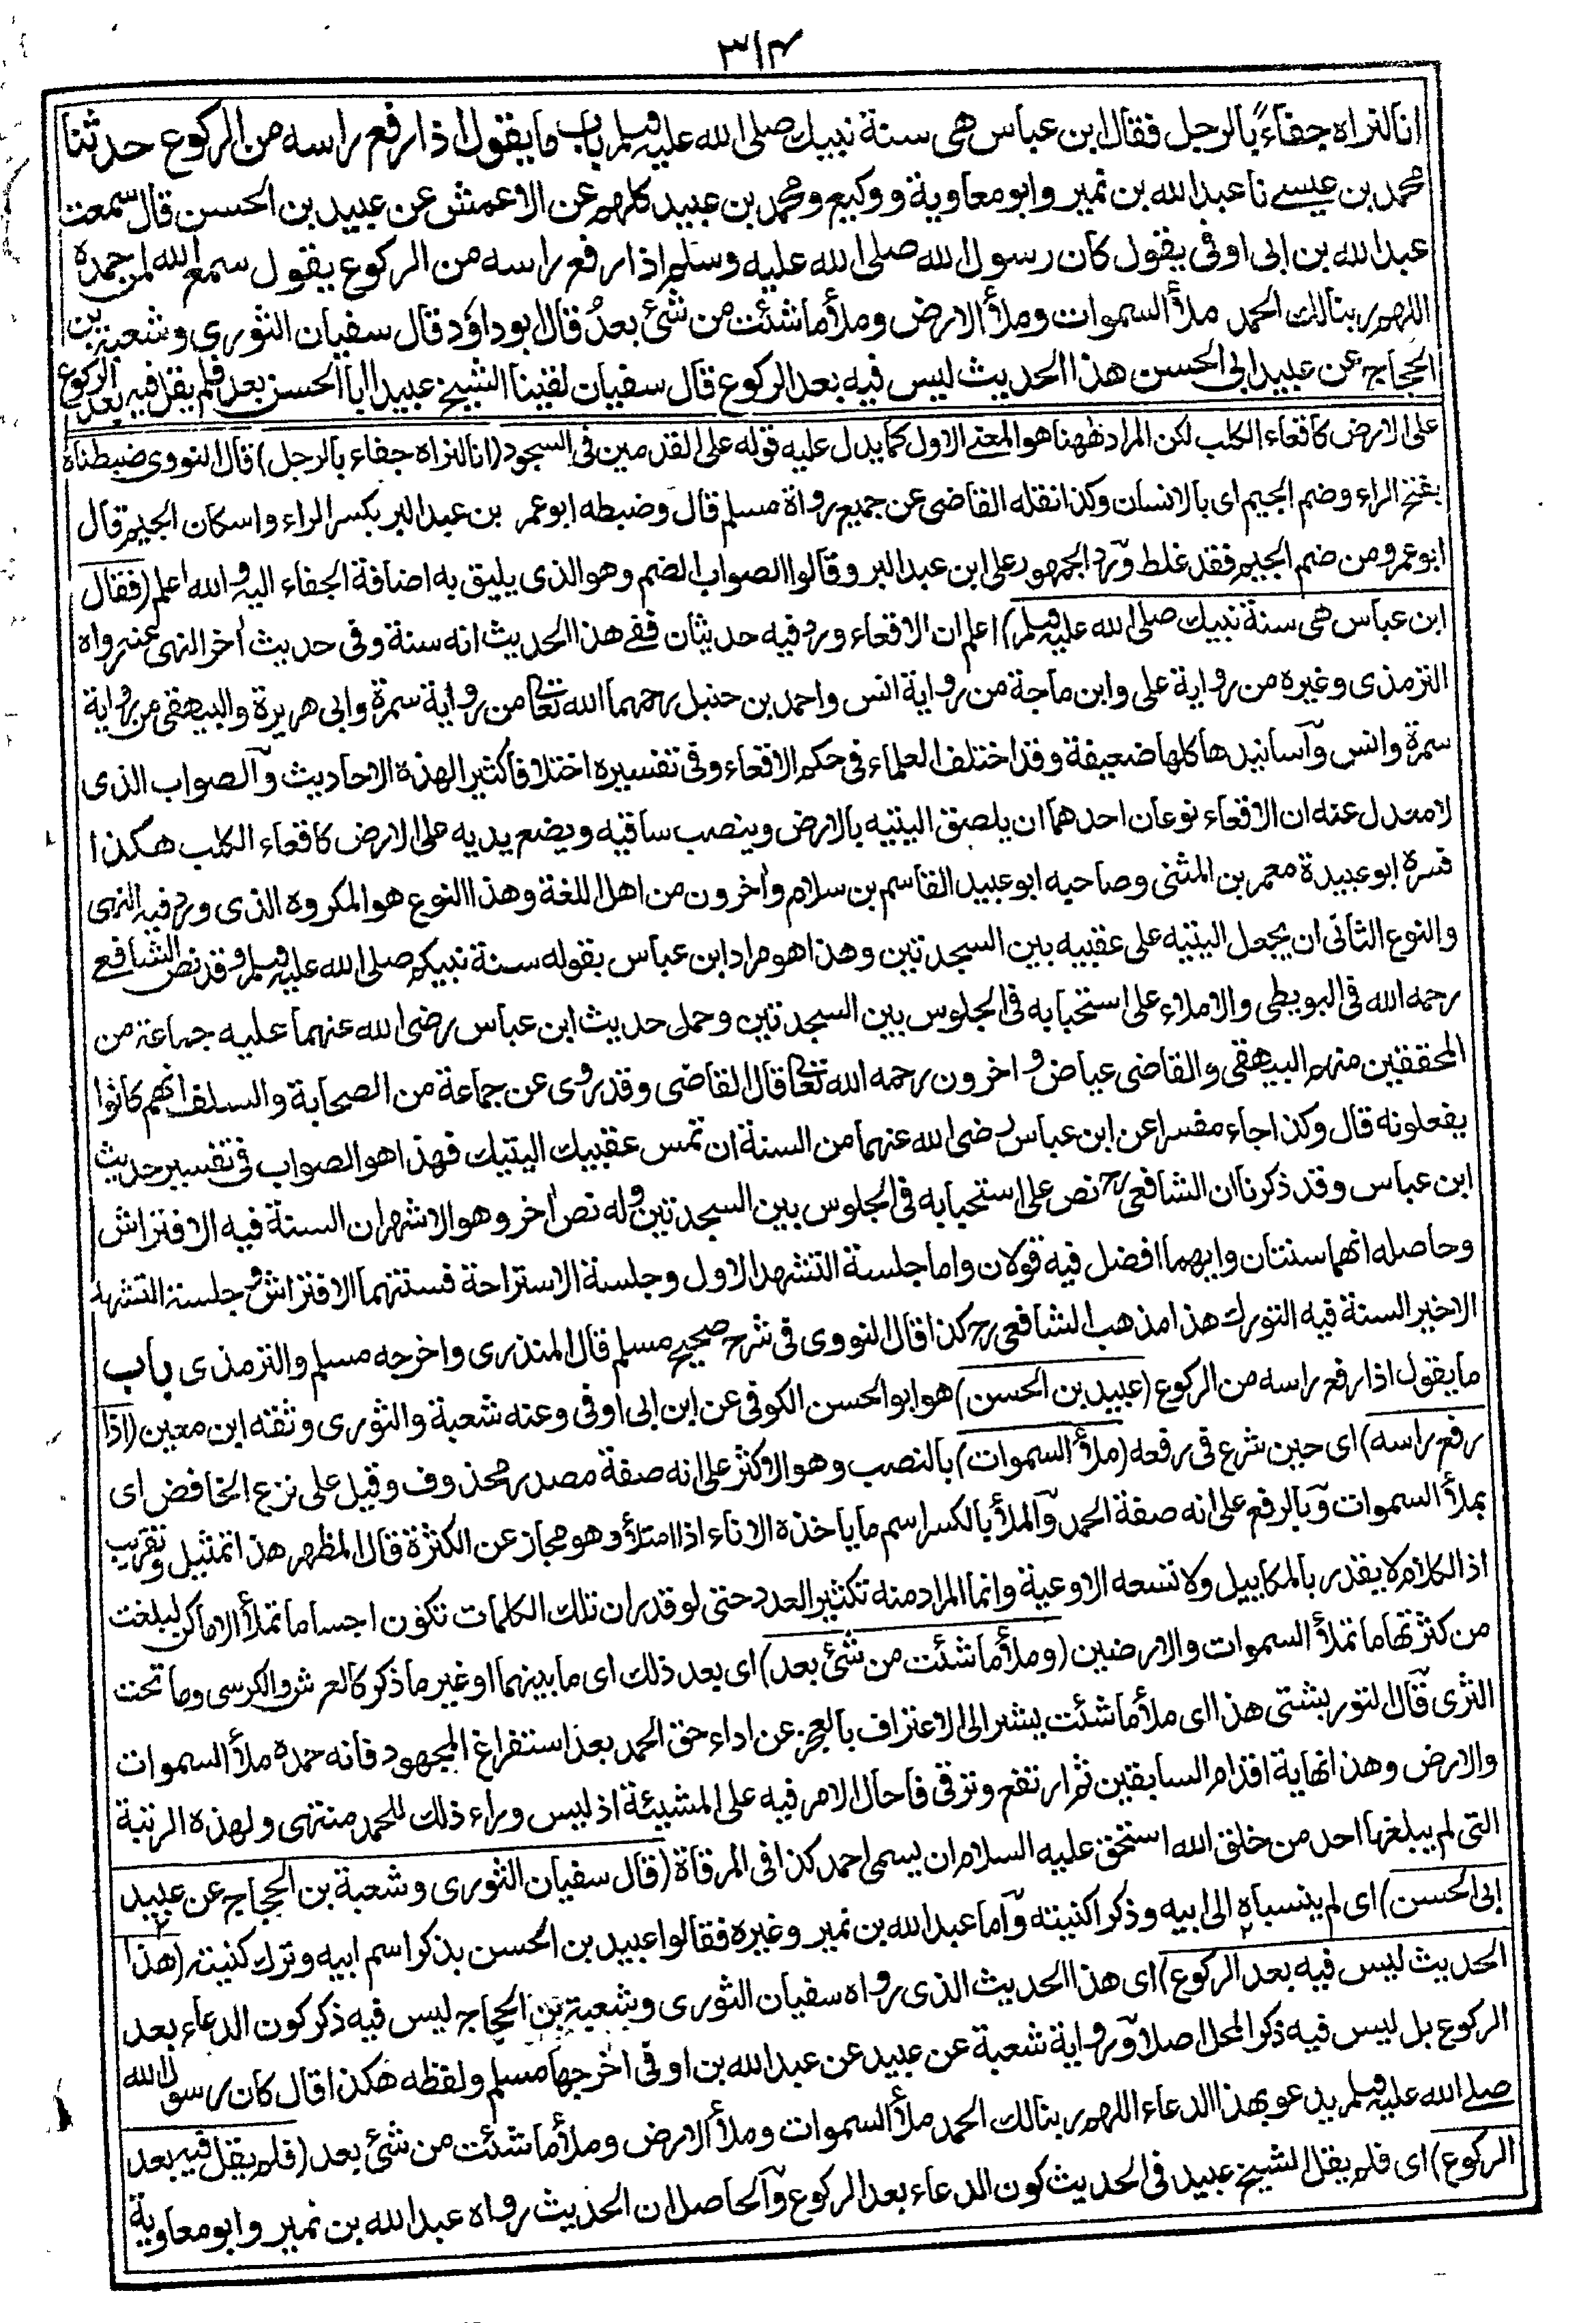 ٣١٤
انا لنراه جفاءً بالرجل فقال ابن عباس هى سنة نبيك صلى الله عليه وسلم باب ما يقول اذا رفع راسه من الركوع حدثنا
محمد بن عيسے نا عبد الله بن نمير وابو معاوية ووكيع ومحمد بن عبيد كلهم عن الاعمش عن عبيد بن الحسن قال سمعت
عبد الله بن ابى اوفى يقول كان رسول الله صلى الله عليه وسلم اذا رفع راسه من الركوع يقول سمع الله لمن حمده
اللهم ربنا لك الحمد ملأ السموات وملأ الارض وملأ ما شئت من شئ بعدُ قال ابو داؤد قال سفيان الثورى وشعبة بن
الحجاج عن عبيد ابى الحسن هذا الحديث ليس فيه بعد الركوع قال سفيان لقينا الشيخ عبيدا ابا الحسن بعد فلم يقل فيه بعد الركوع
على الارض كاقعاء الكلب لكن المراد ظههنا هو المعنے الاول كما يدل عليه قوله على القدمين فى السجود (انا لنراه جفاء بالرجل) قال النووى ضبطناه
بفتح الراء وضم الجيم اى بالانسان وكذا نقله القاضى عن جميع رواة مسلم قال وضبطه ابو عمر بن عبد البر بكسر الراء واسكان الجيم قال
ابو عمرو من ضم الجيم فقد غلط ورد الجمهور على ابن عبد البر وقالوا الصواب الضم وهو الذى يليق به اضافة الجفاء اليه والله اعلم (فقال
ابن عباس هى سنة نبيك صلى الله عليه وسلم) اعلم ان الاقعاء ورد فيه حديثان ففے هذا الحديث انه سنة وفى حديث اٰخر النهى عنه رواه
الترمذى وغيره من رواية على وابن ماجة من رواية انس واحمد بن حنبل رحمهما الله تعالى من رواية سمرة وابى هريرة والبيهقى من رواية
سمرة وانس وآسانيدها كلها ضعيفة وقد اختلف العلماء فى حكم الاقعاء وفى تفسيره اختلافا كثيرا لهذه الاحاديث وآلصواب الذى
لا معدل عنه ان الاقعاء نوعان احدهما ان يلصق اليتيه بالارض وينصب ساقيه ويضع يديه على الارض كاقعاء الكلب هكذا
فسره ابو عبيدة معمر بن المثنى وصاحبه ابو عبيد القاسم بن سلام واٰخرون من اهل اللغة وهذا النوع هو المكروه الذى ورد فيه النهى
والنوع الثانى ان يجعل اليتيه على عقبيه بين السجدتين وهذا هو مراد ابن عباس بقوله سنة نبيكم صلى الله عليه وسلم وقد نص الشافعے
رحمه الله فى البويطى والاملاء على استحبابه فى الجلوس بين السجدتين وحمل حديث ابن عباس رضى الله عنهما عليه جماعة من
المحققين منهم البيهقى والقاضى عياض واٰخرون رحمه الله تعالى قال القاضى وقد روى عن جماعة من الصحابة والسلف انهم كانوا
يفعلونه قال وكذا جاء مفسرا عن ابن عباس رضى الله عنهما من السنة ان تمس عقبيك اليتيك فهذا هو الصواب فى تفسير حديث
ابن عباس وقد ذكرنا ان الشافعى رح نص على استحبابه فى الجلوس بين السجدتين وله نص اٰخر وهو الاشهر ان السنة فيه الافتراش
وحاصله انهما سنتان وايهما افضل فيه قولان واما جلسة التشهد الاول وجلسة الاستراحة فسنتهما الافتراش وجلسة التشهد
الاخير السنة فيه التورك هذا مذهب الشافعى رح كذا قال النووى فى شرح صحيح مسلم قال المنذرى واخرجه مسلم والترمذى باب
ما يقول اذا رفع راسه من الركوع (عبيد بن الحسن) هو ابو الحسن الكوفى عن ابن ابى اوفى وعنه شعبة والثورى وثقه ابن معين (اذا
رفع راسه) اى حين شرع فى رفعه (ملأ السموات) بالنصب وهو الاكثر على انه صفة مصدر محذوف وقيل على نزع الخافض اى
بملأ السموات وبالرفع على انه صفة الحمد وآلملأ بالكسر اسم ما ياخذه الاناء اذا امتلأ وهو مجاز عن الكثرة قال المظهر هذا تمثيل وتقريب
اذ الكلام لا يقدر بالمكاييل ولا تسعه الاوعية وانما المراد منه تكثير العدد حتى لو قدر ان تلك الكلمات تكون اجساما تملأ الاماكن لبلغت
من كثرتها ما تملأ السموات والارضين (وملأ ما شئت من شئ بعد) اى بعد ذلك اى ما بينهما او غير ما ذكر كالعرش والكرسى وما تحت
الثرى قآل التوربشتى هذا اى ملأ ما شئت يشير الى الاعتراف بالعجز عن اداء حق الحمد بعد استفراغ المجهود فانه حمده ملأ السموات
والارض وهذا نهاية اقدام السابقين ثم ارتفع وترقى فاحال الامر فيه على المشيئة اذ ليس وراء ذلك للحمد منتهى ولهذه الرتبة
التى لم يبلغها احد من خلق الله استحق عليه السلام ان يسمى احمد كذا فى المرقاة (قال سفيان الثورى وشعبة بن الحجاج عن عبيد
ابى الحسن) اى لم ينسباه الى ابيه وذكرا كنيته وآما عبد الله بن نمير وغيره فقالوا عبيد بن الحسن بذكر اسم ابيه وترك كنيته (هذا
الحديث ليس فيه بعد الركوع) اى هذا الحديث الذى رواه سفيان الثورى وشعبة بن الحجاج ليس فيه ذكر كون الدعاء بعد
الركوع بل ليس فيه ذكر المحل اصلا ورواية شعبة عن عبيد عن عبد الله بن اوفى اخرجها مسلم ولفظه هكذا قال كان رسول الله
صلے الله عليه وسلم يدعو بهذا الدعاء اللهم ربنا لك الحمد ملأ السموات وملأ الارض وملأ ما شئت من شئ بعد (فلم يقل فيه بعد
الركوع) اى فلم يقل الشيخ عبيد فى الحديث كون الدعاء بعد الركوع وآلحاصل ان الحديث رواه عبد الله بن نمير وابو معاوية